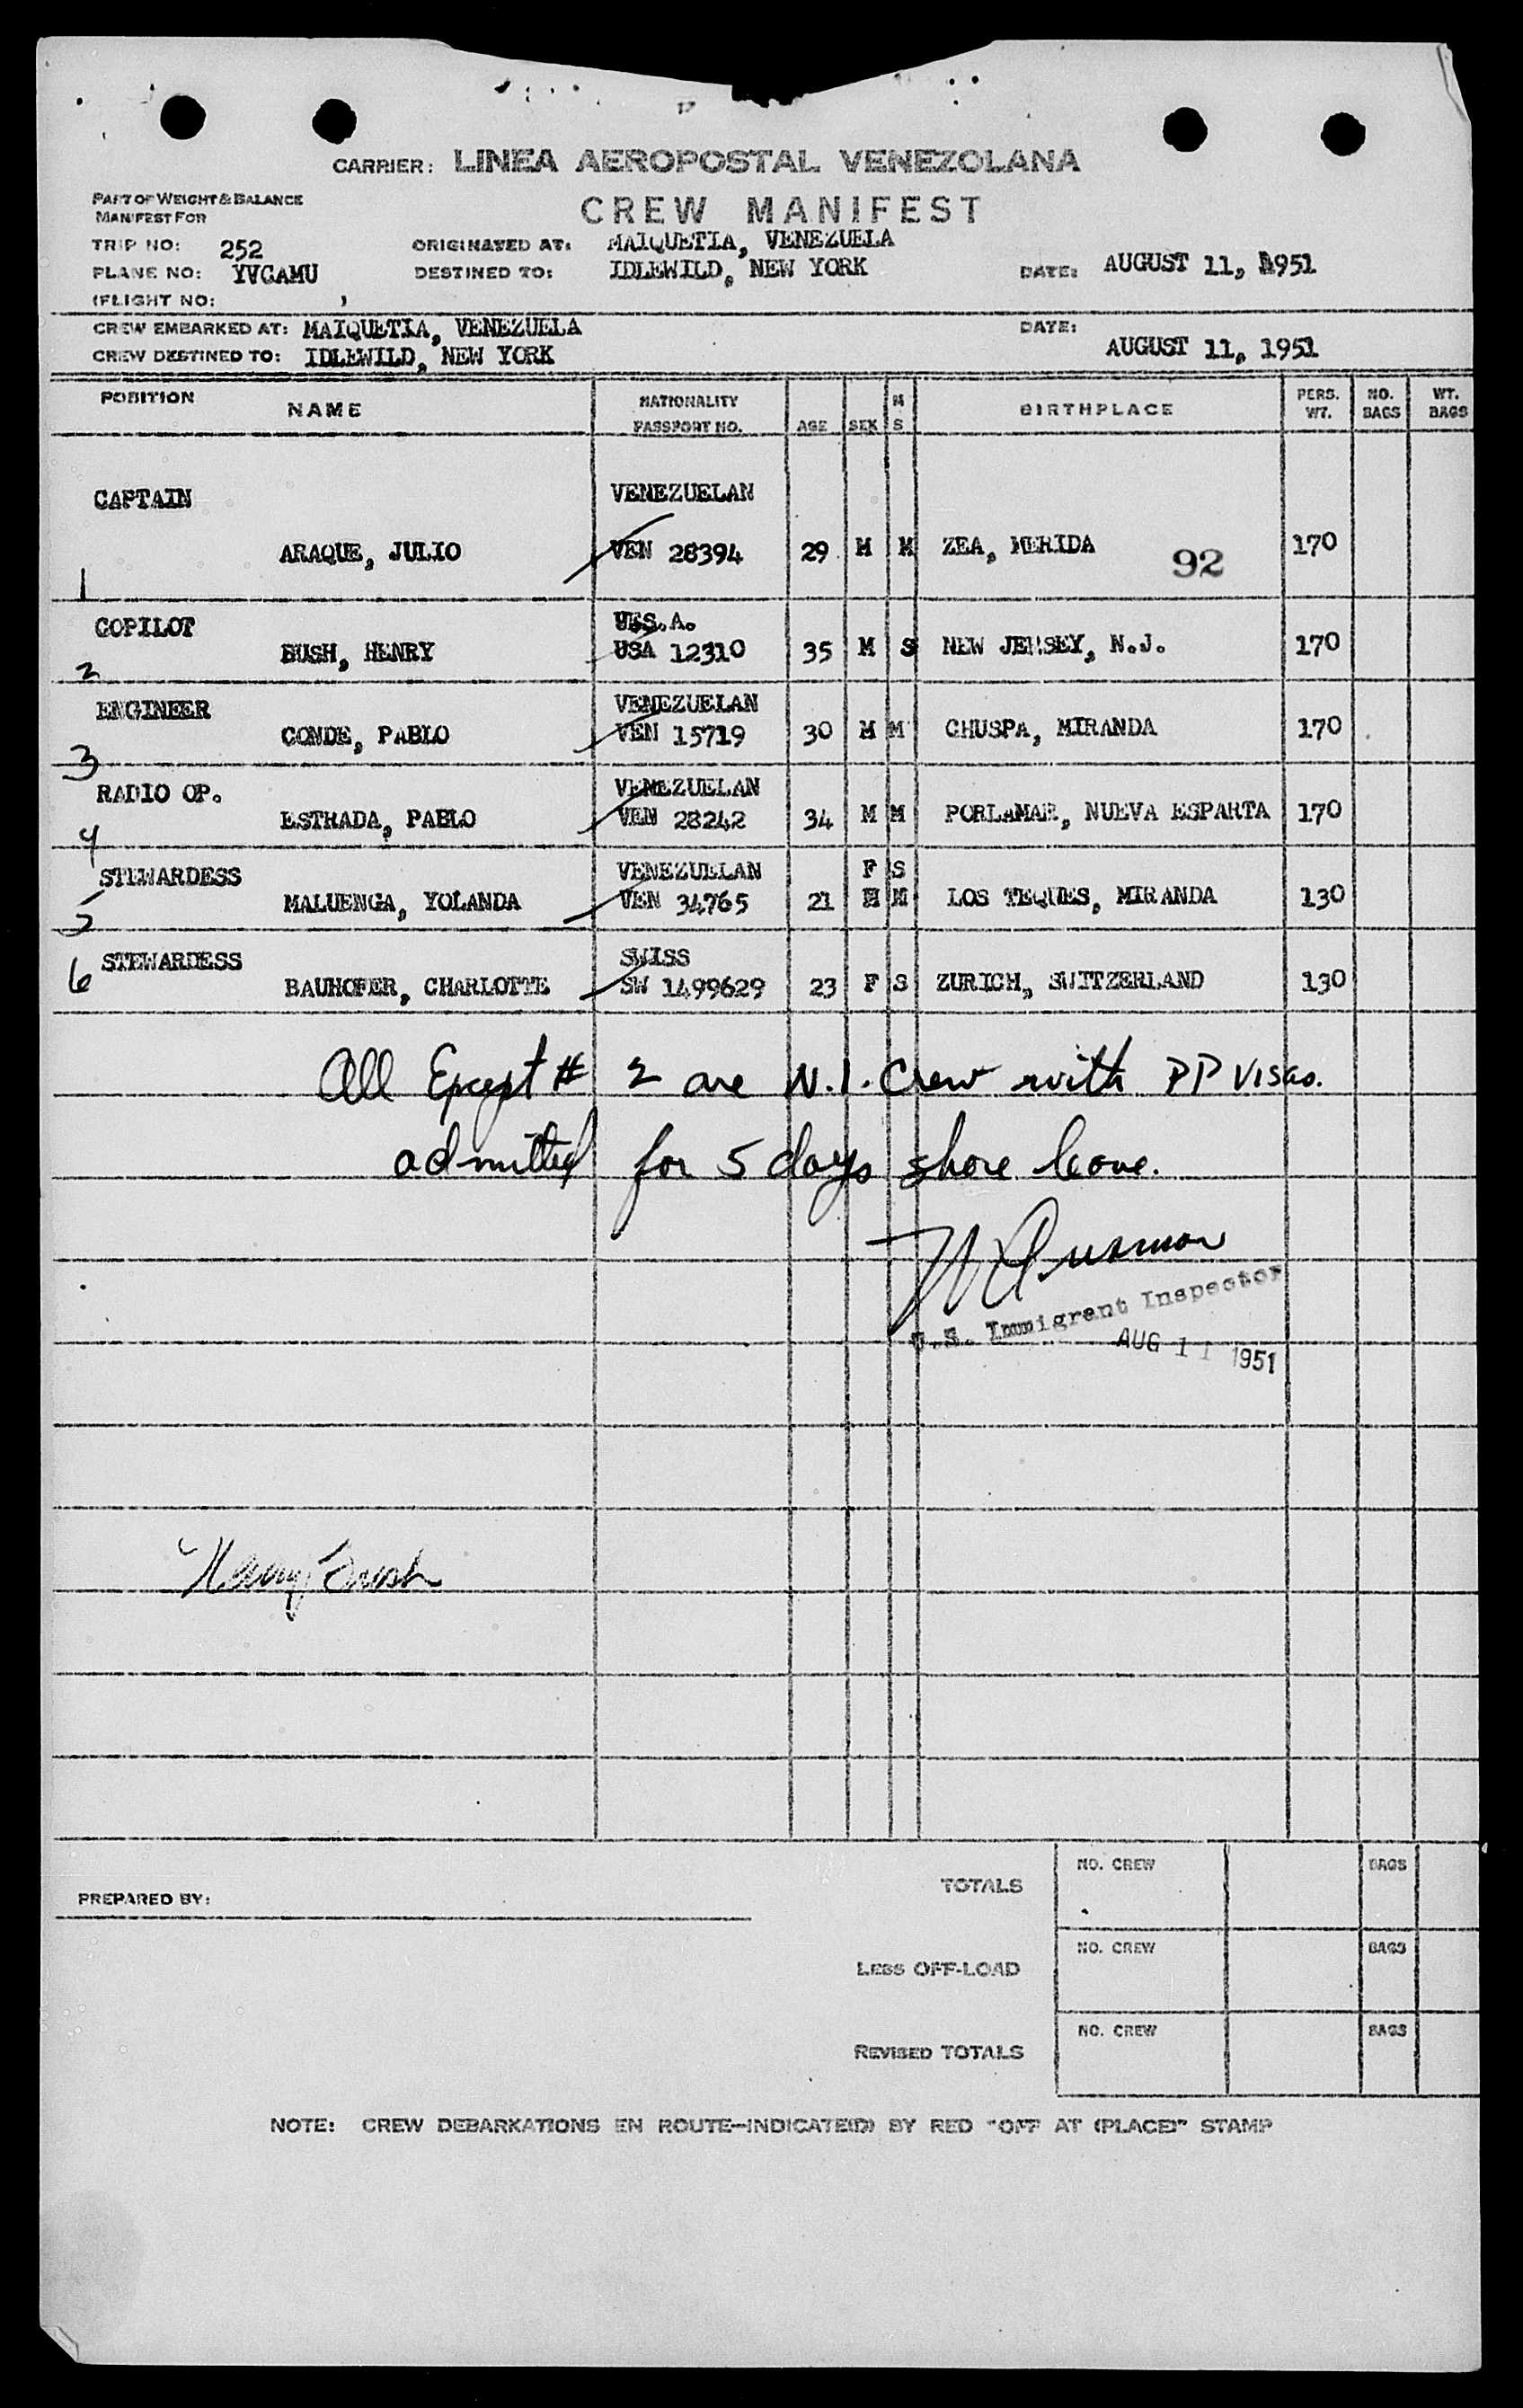 CARRIER: LINEA AEROPOSTAL VENEZOLANA
PART OF WEIGHT & BALANCE
MANIFEST FOR
CREW MANIFEST
TRIP NO: 252
ORIGINATED AT: MAIQUETIA, VENEZUELA
PLANE NO: YVCAMU
DESTINED TO: IDLEWILD, NEW YORK
DATE: AUGUST 11, 1951
(FLIGHT NO: )
CREW EMBARKED AT: MAIQUETIA, VENEZUELA
DATE:
CREW DESTINED TO: IDLEWILD, NEW YORK
AUGUST 11, 1951
POSITION NAME NATIONALITY PASSPORT NO. AGE SEX M S BIRTHPLACE PERS. WT. NO. BAGS WT. BAGS
CAPTAIN VENEZUELAN
1 ARAQUE, JULIO VEN 28394 29 M M ZEA, MERIDA 92 170
COPILOT U.S.A.
2 BUSH, HENRY USA 12310 35 M S NEW JERSEY, N.J. 170
ENGINEER VENEZUELAN
3 CONDE, PABLO VEN 15719 30 M M CHUSPA, MIRANDA 170
RADIO OP. VENEZUELAN
4 ESTRADA, PABLO VEN 28242 34 M M PORLAMAR, NUEVA ESPARTA 170
STEWARDESS VENEZUELAN F S
5 MALUENGA, YOLANDA VEN 34765 21 M M LOS TEQUES, MIRANDA 130
6 STEWARDESS SWISS
BAUHOFER, CHARLOTTE SW 1499629 23 F S ZURICH, SWITZERLAND 130
All Except # 2 are N.I. Crew with PP visas.
admitted for 5 days shore leave.
U.S. Immigrant Inspector
AUG 11 1951
Henry Bush
PREPARED BY:
TOTALS NO. CREW BAGS
LESS OFF-LOAD NO. CREW BAGS
REVISED TOTALS NO. CREW BAGS
NOTE: CREW DEBARKATIONS EN ROUTE—INDICATE(D) BY RED "OFF AT (PLACE)" STAMP